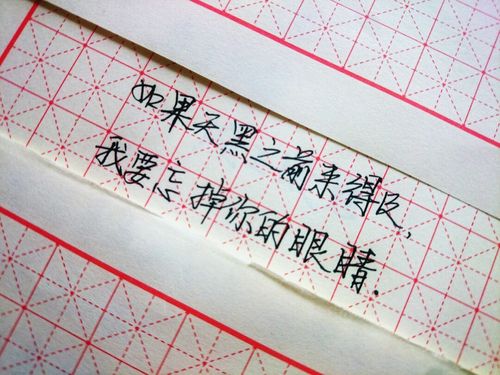 如果天黑之前来得及,
我要忘掉你的眼睛.